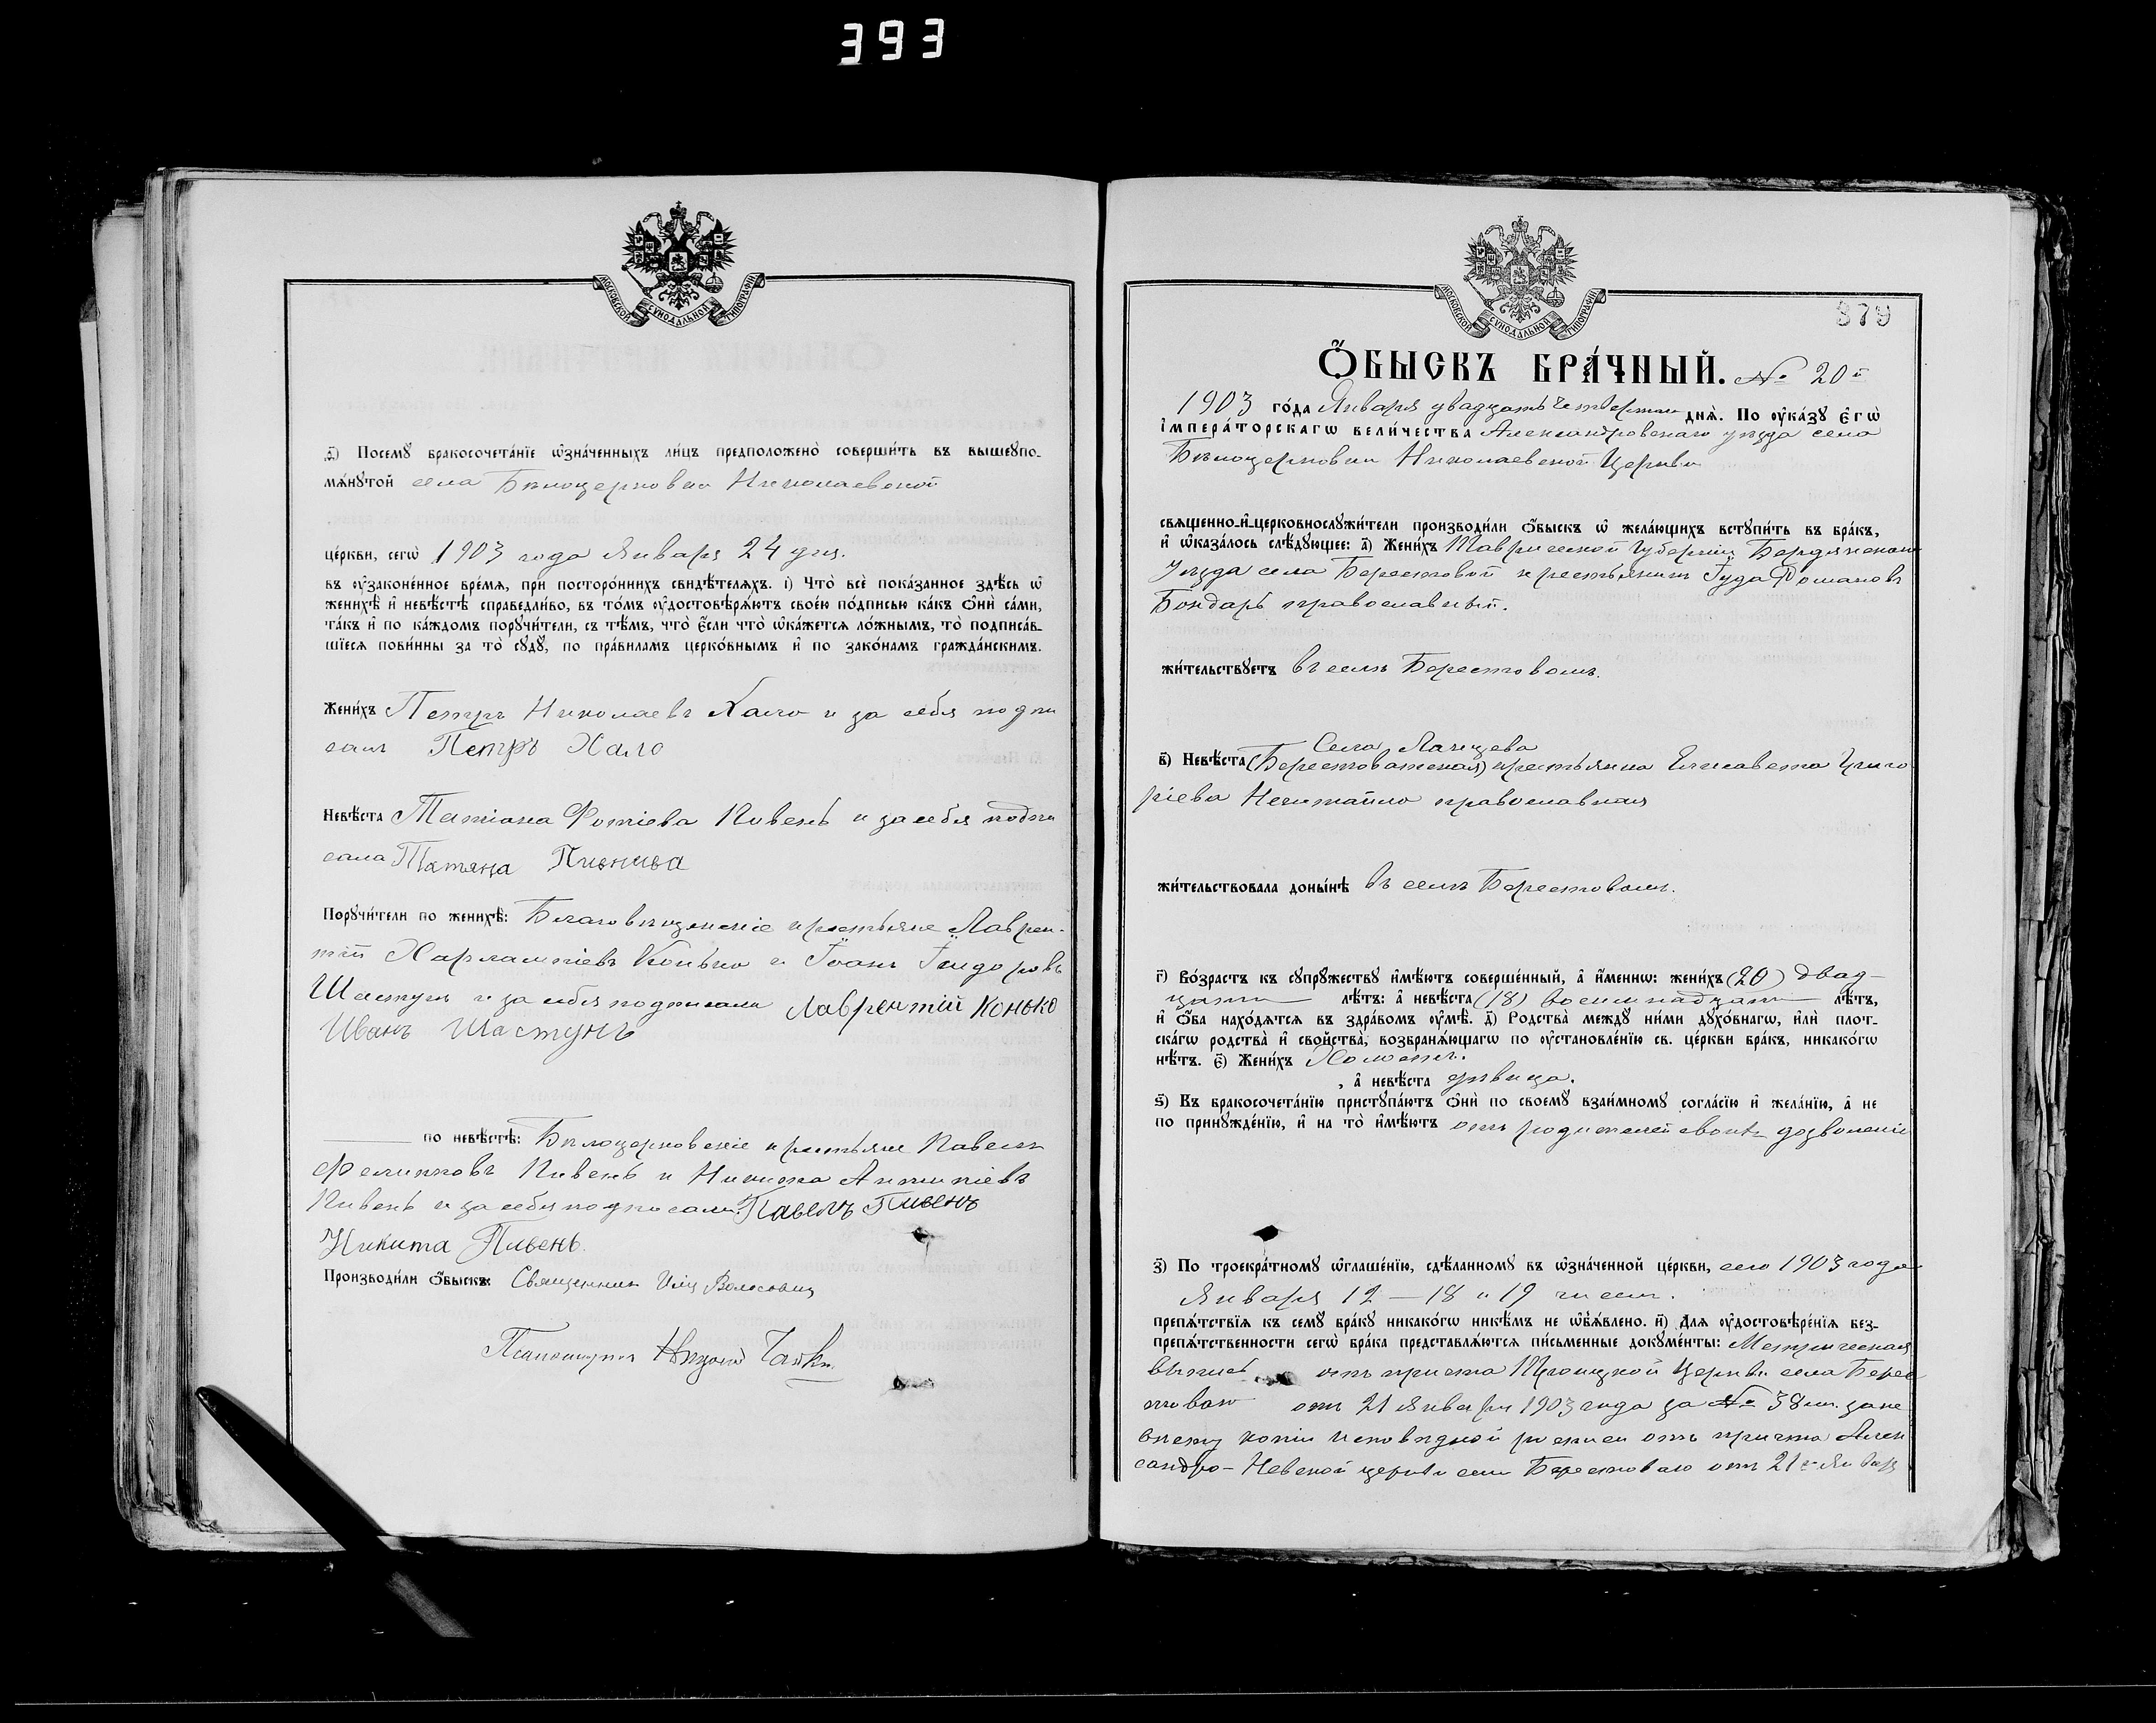 393
МОСКОВСКОЙ СѴНОДАЛЬНОЙ ТИПОГРАФІИ
д҃) Посемꙋ бракосочета́нїе ѡ҆зна́ченныхъ ли́цъ предположено̀ соверши́ть въ вышеꙋпо-
мѧ́нꙋтой села Бѣлоцерковки Николаевской
це́ркви, сегѡ̀ 1903 года Января 24 дня.
въ ѹ҆зако́ненное вре́мѧ, при посторо́ннихъ свидѣ́телѧхъ. і҃) Что̀ всѐ пока́занное здѣ́сь ѡ҆
женихѣ̀ и҆ невѣ́стѣ справедли́во, въ то́мъ ѹ҆достовѣрѧ́ютъ свое́ю по́дписью ка́къ ѻ҆нѝ са́ми,
та́къ и҆ по ка́ждомъ порꙋчи́тели, съ тѣ́мъ, что̀ є҆́сли что̀ ѡ҆ка́жетсѧ ло́жнымъ, то̀ подписа́в-
шїесѧ пови́нны за то̀ сꙋдꙋ̀, по пра́виламъ церко́внымъ и҆ по зако́намъ гражда́нскимъ.
Жени́хъ Петръ Николаевъ Хало и за себя подпи
салъ Петръ Хало
Невѣ́ста Татіана Фотіева Пивень и за себя подпи
сала Татяна Пивнива
Порꙋчи́тели по женихѣ̀: Благовѣщенскіе крестьяне Лаврен-
тій Харлампіевъ Конько и Іоанъ Ісидоровъ
Шастунъ и за себя подписали Лаврентій Конько
Иванъ Шастунъ
по невѣ́стѣ: Бѣлоцерковскіе крестьяне Павелъ
Филиповъ Пивень и Никита Антипіевъ
Пивень и за себя подписали: Павелъ Пивень
Никита Пивень.
Производи́ли ѻ҆́быскъ: Священникъ Илія Волосовиц
Псаломщикъ
МОСКОВСКОЙ СѴНОДАЛЬНОЙ ТИПОГРАФІИ
379
Ѻ҆́БЫСКЪ БРА́ЧНЫЙ. № 20й
1903 го́да Января двадцать четвертаго днѧ̀. По ѹ҆ка́зꙋ є҆гѡ̀
і҆мпера́торскагѡ вели́чества Александровскаго уѣзда села
Бѣлоцерковки Николаевской Церкви
свѧще́нно-и҆-церковнослꙋжи́тели производи́ли ѻ҆́быскъ ѡ҆ жела́ющихъ встꙋпи́ть въ бра́къ,
и҆ ѡ҆каза́лось слѣ́дꙋющее: а҃) Жени́хъ Таврической Губерніи Бердянскаго
Уѣзда села Берестовой крестьянинъ Іуда Фомановъ
Бондарь православный.
жи́тельствꙋетъ въ селѣ Берестовомъ.
Села Лапцева
в҃) Невѣ́ста (Берестоватская) крестьянка Елисавета Григо
ріева Нечитайло православная
жи́тельствовала доны́нѣ въ селѣ Берестовомъ.
г҃) Во́зрастъ къ сꙋпрꙋ́жествꙋ и҆мѣ́ютъ соверше́нный, а҆ и҆́меннѡ: жени́хъ (20) двад-
цати лѣ́тъ: а҆ невѣ́ста (18) восемнадцати лѣ́тъ,
и҆ ѻ҆́ба нахо́дѧтсѧ въ здра́вомъ ѹ҆мѣ̀. д҃) Родства̀ междꙋ̀ ни́ми дꙋхо́внагѡ, и҆лѝ плот-
ска́гѡ родства̀ и҆ сво́йства̀, возбранѧ́ющагѡ по ѹ҆становле́нїю св. це́ркви бра́къ, никако́гѡ
нѣ́тъ. є҃) Жени́хъ Холостъ.
, а҆ невѣ́ста дѣвица.
ѕ҃) Къ бракосочета́нїю пристꙋпа́ютъ ѻ҆нѝ по своемꙋ̀ взаи́мномꙋ согла́сїю и҆ жела́нїю, а҆ не
по принꙋжде́нїю, и҆ на то̀ и҆мѣ́ютъ отъ родителей своихъ дозволеніе
з҃) По троекра́тномꙋ ѡ҆глаше́нїю, сдѣ́ланномꙋ въ ѡ҆зна́ченной це́ркви, сего 1903 года
Января 12 — 18 и 19 числъ.
препѧ́тствїѧ къ семꙋ̀ бра́кꙋ никако́гѡ никѣ́мъ не ѡ҆б̾ѧ́влено. и҃) Длѧ ѹ҆достовѣре́нїѧ без-
препѧ́тственности сегѡ̀ бра́ка представлѧ́ютсѧ пи́сьменные докꙋме́нты: Метрическая
выпись отъ причта Троицкой Церкви села Берес
товаго отъ 21 Января 1903 года за № 38 м.
копіи исповѣдной росписи отъ причта Алек
сандро-Невской церкви села Берестоваго отъ 21го Января